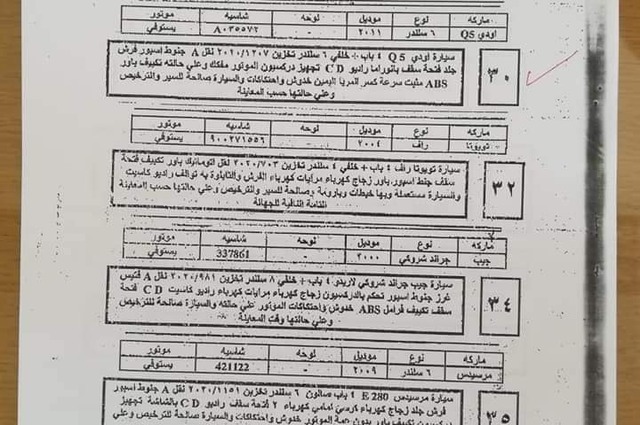 ماركه نوع موديل لوحه شاسيه موتور
اودي Q5 ٦ سلندر ٢٠١١ - A٠٣٥٥٧٢ يستوفي
٣٠
سيارة اودي Q 5 ٤ باب + خلفي ٦ سلندر تخزين ٢٠٢٠/١٢٠٧ نقل A جنوط اسبور فرش
جلد فتحة سقف بانوراما راديو C D تجهيز دركسيون الموتور مفكك وعلي حالته تكييف باور
ABS مثبت سرعة كسر المرايا اليمين خدوش واحتكاكات والسيارة صالحة للسير والترخيص
وعلي حالتها حسب المعاينة
ماركه نوع موديل لوحه شاسيه موتور
تويوتا راف ٢٠٠٤ - ٩٠٠٢٧١٥٥٦ يستوفي
٣٢
سيارة تويوتا راف ٤ باب + خلفي ٤ سلندر تخزين ٢٠٢٠/٧٠٣ نقل اتوماتيك باور تكييف فتحة
سقف جنط اسبور باور زجاج كهرباء مرايات كهرباء الفرش والتابلوة به توالف راديو كاسيت
والسيارة مستعملة وبها خبطات وبارومة وصالحة للسير والترخيص وعلي حالتها حسب المعاينة
التامة النافية للجهالة
ماركه نوع موديل لوحه شاسيه موتور
جيب جراند شروكي ٢٠٠٠ - 337861 يستوفي
٣٤
سيارة جيب جراند شروكي لاريدو ٤ باب + خلفي ٨ سلندر تخزين ٢٠٢٠/٩٨١ نقل A فتيس
غرز جنوط اسبور تحكم بالدركسيون زجاج كهرباء مرايات كهرباء راديو كاسيت C D فتحة
سقف تكييف فرامل ABS خدوش واحتكاكات الموتور علي حالته والسيارة صالحة للترخيص
وعلي حالتها وقت المعاينة
ماركه نوع موديل لوحه شاسيه موتور
مرسيدس ٦ سلندر ٢٠٠٩ - 421122 يستوفي
٣٥
سيارة مرسيدس E 280 ٤ باب صالون ٦ سلندر تخزين ٢٠٢٠/١١٥١ نقل A جنوط اسبور
فرش جلد زجاج كهرباء كرسي امامي كهرباء ٢ فتحة سقف راديو C D بالشاشة تجهيز
دركسيون تكييف باور بدون الموتور خدوش واحتكاكات والسيارة صالحة للترخيص وعلي